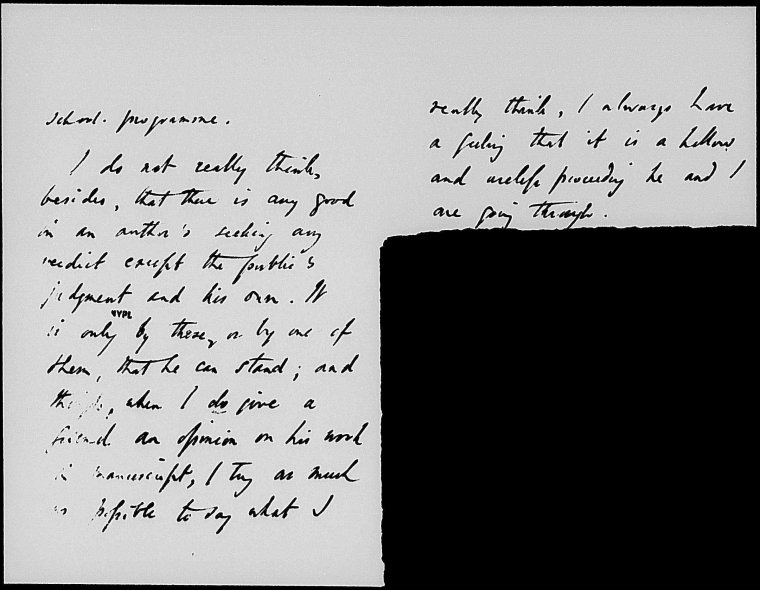 school programme.
I do not really think,
besides, that there is any good
in an author's seeking any
verdict except the public's
judgment and his own. It
is only by these, or by one of
NYPL
them, that he can stand; and
though, when I do give a
friend an opinion on his work
in manuscript, I try as much
as possible to say what I
really think, I always have
a feeling that it is a hollow
and useless proceeding he and I
are going through.